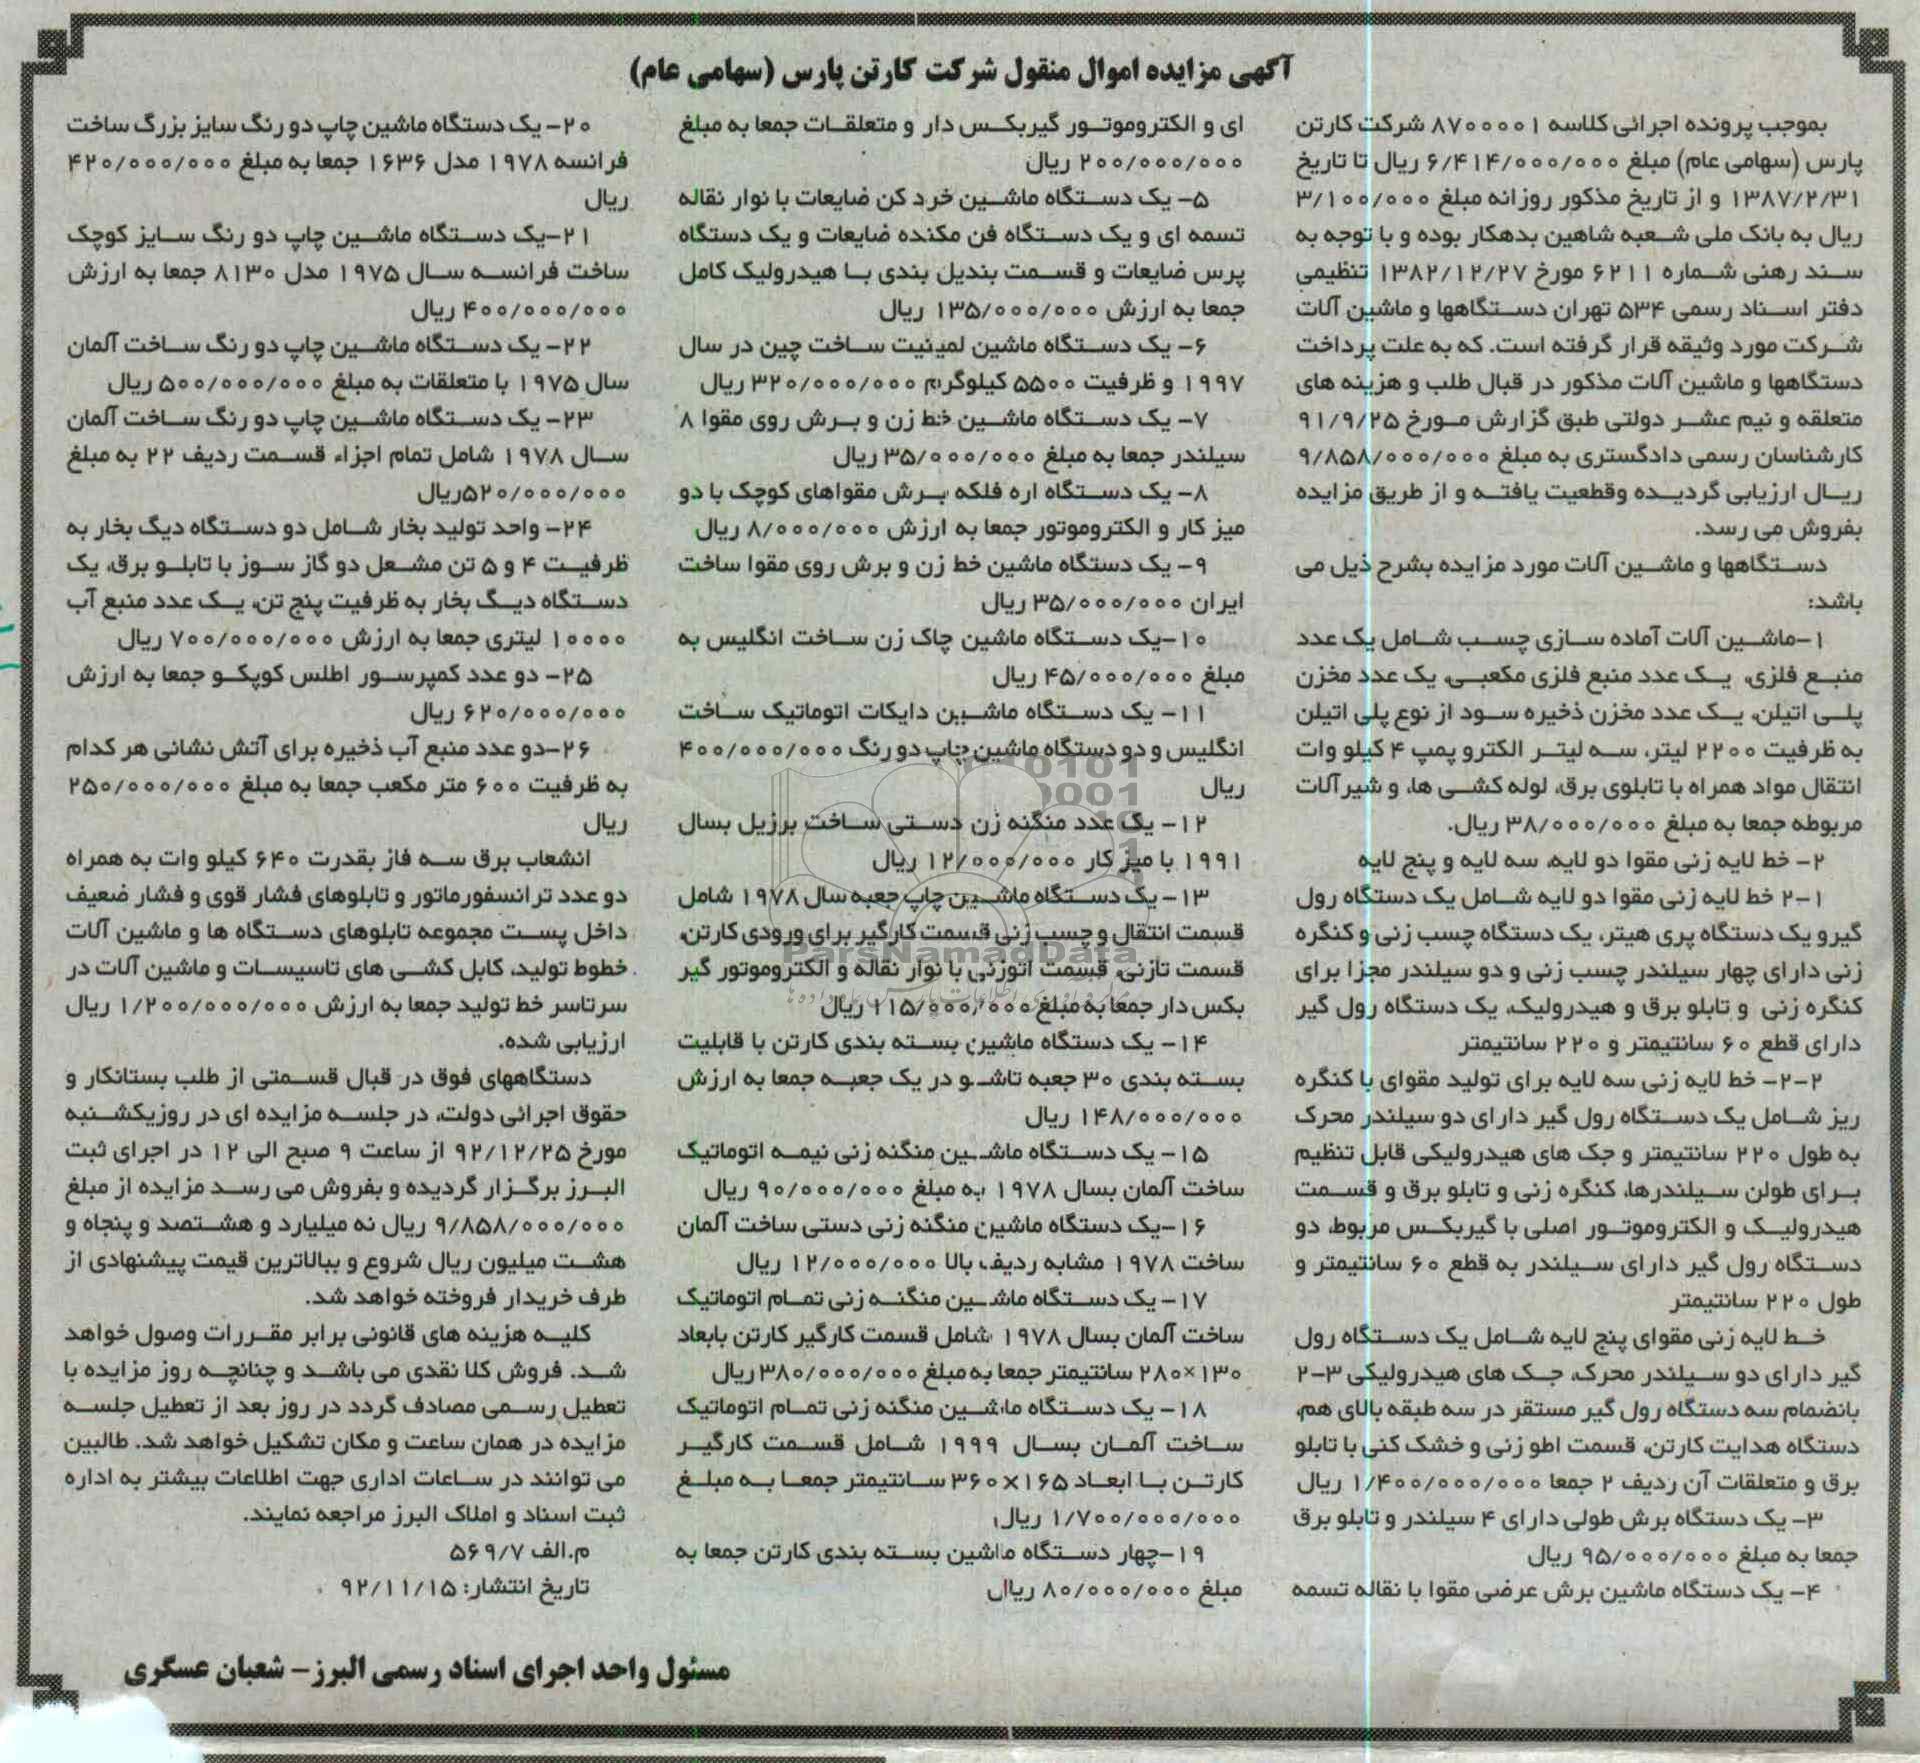 آگهی مزایده اموال منقول شرکت کارتن پارس (سهامی عام)
بموجب پرونده اجرائی کلاسه ۸۷۰۰۰۰۱ شرکت کارتن
پارس (سهامی عام) مبلغ ۶/۴۱۴/۰۰۰/۰۰۰ ریال تا تاریخ
۱۳۸۷/۲/۳۱ و از تاریخ مذکور روزانه مبلغ ۳/۱۰۰/۰۰۰
ریال به بانک ملی شعبه شاهین بدهکار بوده و با توجه به
سند رهنی شماره ۶۲۱۱ مورخ ۱۳۸۲/۱۲/۲۷ تنظیمی
دفتر اسناد رسمی ۵۳۴ تهران دستگاهها و ماشین آلات
شرکت مورد وثیقه قرار گرفته است. که به علت پرداخت
دستگاهها و ماشین آلات مذکور در قبال طلب و هزینه های
متعلقه و نیم عشر دولتی طبق گزارش مورخ ۹۱/۹/۲۵
کارشناسان رسمی دادگستری به مبلغ ۹/۸۵۸/۰۰۰/۰۰۰
ریال ارزیابی گردیده وقطعیت یافته و از طریق مزایده
بفروش می رسد.
دستگاهها و ماشین آلات مورد مزایده بشرح ذیل می
باشد:
۱-ماشین آلات آماده سازی چسب شامل یک عدد
منبع فلزی، یک عدد منبع فلزی مکعبی، یک عدد مخزن
پلی اتیلن، یک عدد مخزن ذخیره سود از نوع پلی اتیلن
به ظرفیت ۲۲۰۰ لیتر، سه لیتر الکترو پمپ ۴ کیلو وات
انتقال مواد همراه با تابلوی برق، لوله کشی ها، و شیرآلات
مربوطه جمعا به مبلغ ۳۸/۰۰۰/۰۰۰ ریال.
۲- خط لایه زنی مقوا دو لایه، سه لایه و پنج لایه
۲-۱ خط لایه زنی مقوا دو لایه شامل یک دستگاه رول
گیرو یک دستگاه پری هیتر، یک دستگاه چسب زنی و کنگره
زنی دارای چهار سیلندر چسب زنی و دو سیلندر مجزا برای
کنگره زنی و تابلو برق و هیدرولیک، یک دستگاه رول گیر
دارای قطع ۶۰ سانتیمتر و ۲۲۰ سانتیمتر
۲-۲- خط لایه زنی سه لایه برای تولید مقوای با کنگره
ریز شامل یک دستگاه رول گیر دارای دو سیلندر محرک
به طول ۲۲۰ سانتیمتر و جک های هیدرولیکی قابل تنظیم
برای طولن سیلندرها، کنگره زنی و تابلو برق و قسمت
هیدرولیک و الکتروموتور اصلی با گیربکس مربوط، دو
دستگاه رول گیر دارای سیلندر به قطع ۶۰ سانتیمتر و
طول ۲۲۰ سانتیمتر
خط لایه زنی مقوای پنج لایه شامل یک دستگاه رول
گیر دارای دو سیلندر محرک، جک های هیدرولیکی ۳-۲
بانضمام سه دستگاه رول گیر مستقر در سه طبقه بالای هم،
دستگاه هدایت کارتن، قسمت اطو زنی و خشک کنی با تابلو
برق و متعلقات آن ردیف ۲ جمعا ۱/۴۰۰/۰۰۰/۰۰۰ ریال
۳- یک دستگاه برش طولی دارای ۴ سیلندر و تابلو برق
جمعا به مبلغ ۹۵/۰۰۰/۰۰۰ ریال
۴- یک دستگاه ماشین برش عرضی مقوا با نقاله تسمه
ای و الکتروموتور گیربکس دار و متعلقات جمعا به مبلغ
۲۰۰/۰۰۰/۰۰۰ ریال
۵- یک دستگاه ماشین خرد کن ضایعات با نوار نقاله
تسمه ای و یک دستگاه فن مکنده ضایعات و یک دستگاه
پرس ضایعات و قسمت بندیل بندی با هیدرولیک کامل
جمعا به ارزش ۱۳۵/۰۰۰/۰۰۰ ریال
۶- یک دستگاه ماشین لمینیت ساخت چین در سال
۱۹۹۷ و ظرفیت ۵۵۰۰ کیلوگرم ۳۲۰/۰۰۰/۰۰۰ ریال
۷- یک دستگاه ماشین خط زن و برش روی مقوا ۸
سیلندر جمعا به مبلغ ۳۵/۰۰۰/۰۰۰ ریال
۸- یک دستگاه اره فلکه برش مقواهای کوچک با دو
میز کار و الکتروموتور جمعا به ارزش ۸/۰۰۰/۰۰۰ ریال
۹- یک دستگاه ماشین خط زن و برش روی مقوا ساخت
ایران ۳۵/۰۰۰/۰۰۰ ریال
۱۰-یک دستگاه ماشین چاک زن ساخت انگلیس به
مبلغ ۴۵/۰۰۰/۰۰۰ ریال
۱۱- یک دستگاه ماشین دایکات اتوماتیک ساخت
انگلیس و دو دستگاه ماشین چاپ دو رنگ ۴۰۰/۰۰۰/۰۰۰
ریال
۱۲- یک عدد منگنه زن دستی ساخت برزیل بسال
۱۹۹۱ با میز کار ۱۲/۰۰۰/۰۰۰ ریال
۱۳- یک دستگاه ماشین چاپ جعبه سال ۱۹۷۸ شامل
قسمت انتقال و چسب زنی قسمت کارگیر برای ورودی کارتن،
قسمت تازنی، قسمت اتوزنی با نوار نقاله و الکتروموتور گیر
بکس دار جمعا به مبلغ ۱۱۵/۰۰۰/۰۰۰ ریال
۱۴- یک دستگاه ماشین بسته بندی کارتن با قابلیت
بسته بندی ۳۰ جعبه تاشو در یک جعبه جمعا به ارزش
۱۴۸/۰۰۰/۰۰۰ ریال
۱۵- یک دستگاه ماشین منگنه زنی نیمه اتوماتیک
ساخت آلمان بسال ۱۹۷۸ به مبلغ ۹۰/۰۰۰/۰۰۰ ریال
۱۶-یک دستگاه ماشین منگنه زنی دستی ساخت آلمان
ساخت ۱۹۷۸ مشابه ردیف بالا ۱۲/۰۰۰/۰۰۰ ریال
۱۷- یک دستگاه ماشین منگنه زنی تمام اتوماتیک
ساخت آلمان بسال ۱۹۷۸ شامل قسمت کارگیر کارتن بابعاد
۲۸۰×۱۳۰ سانتیمتر جمعا به مبلغ ۳۸۰/۰۰۰/۰۰۰ ریال
۱۸- یک دستگاه ماشین منگنه زنی تمام اتوماتیک
ساخت آلمان بسال ۱۹۹۹ شامل قسمت کارگیر
کارتن با ابعاد ۳۶۰×۱۶۵ سانتیمتر جمعا به مبلغ
۱/۷۰۰/۰۰۰/۰۰۰ ریال
۱۹-چهار دستگاه ماشین بسته بندی کارتن جمعا به
مبلغ ۸۰/۰۰۰/۰۰۰ ریال
۲۰- یک دستگاه ماشین چاپ دو رنگ سایز بزرگ ساخت
فرانسه ۱۹۷۸ مدل ۱۶۳۶ جمعا به مبلغ ۴۲۰/۰۰۰/۰۰۰
ریال
۲۱-یک دستگاه ماشین چاپ دو رنگ سایز کوچک
ساخت فرانسه سال ۱۹۷۵ مدل ۸۱۳۰ جمعا به ارزش
۴۰۰/۰۰۰/۰۰۰ ریال
۲۲- یک دستگاه ماشین چاپ دو رنگ ساخت آلمان
سال ۱۹۷۵ با متعلقات به مبلغ ۵۰۰/۰۰۰/۰۰۰ ریال
۲۳- یک دستگاه ماشین چاپ دو رنگ ساخت آلمان
سال ۱۹۷۸ شامل تمام اجزاء قسمت ردیف ۲۲ به مبلغ
۵۲۰/۰۰۰/۰۰۰ریال
۲۴- واحد تولید بخار شامل دو دستگاه دیگ بخار به
ظرفیت ۴ و ۵ تن مشعل دو گاز سوز با تابلو برق، یک
دستگاه دیگ بخار به ظرفیت پنج تن، یک عدد منبع آب
۱۰۰۰۰ لیتری جمعا به ارزش ۷۰۰/۰۰۰/۰۰۰ ریال
۲۵- دو عدد کمپرسور اطلس کوپکو جمعا به ارزش
۶۲۰/۰۰۰/۰۰۰ ریال
۲۶-دو عدد منبع آب ذخیره برای آتش نشانی هر کدام
به ظرفیت ۶۰۰ متر مکعب جمعا به مبلغ ۲۵۰/۰۰۰/۰۰۰
ریال
انشعاب برق سه فاز بقدرت ۶۴۰ کیلو وات به همراه
دو عدد ترانسفورماتور و تابلوهای فشار قوی و فشار ضعیف
داخل پست مجموعه تابلوهای دستگاه ها و ماشین آلات
خطوط تولید، کابل کشی های تاسیسات و ماشین آلات در
سرتاسر خط تولید جمعا به ارزش ۱/۲۰۰/۰۰۰/۰۰۰ ریال
ارزیابی شده.
دستگاههای فوق در قبال قسمتی از طلب بستانکار و
حقوق اجرائی دولت، در جلسه مزایده ای در روزیکشنبه
مورخ ۹۲/۱۲/۲۵ از ساعت ۹ صبح الی ۱۲ در اجرای ثبت
البرز برگزار گردیده و بفروش می رسد مزایده از مبلغ
۹/۸۵۸/۰۰۰/۰۰۰ ریال نه میلیارد و هشتصد و پنجاه و
هشت میلیون ریال شروع و ببالاترین قیمت پیشنهادی از
طرف خریدار فروخته خواهد شد.
کلیه هزینه های قانونی برابر مقررات وصول خواهد
شد. فروش کلا نقدی می باشد و چنانچه روز مزایده با
تعطیل رسمی مصادف گردد در روز بعد از تعطیل جلسه
مزایده در همان ساعت و مکان تشکیل خواهد شد. طالبین
می توانند در ساعات اداری جهت اطلاعات بیشتر به اداره
ثبت اسناد و املاک البرز مراجعه نمایند.
م.الف ۵۶۹/۷
تاریخ انتشار: ۹۲/۱۱/۱۵
مسئول واحد اجرای اسناد رسمی البرز- شعبان عسگری
ParsNamadData